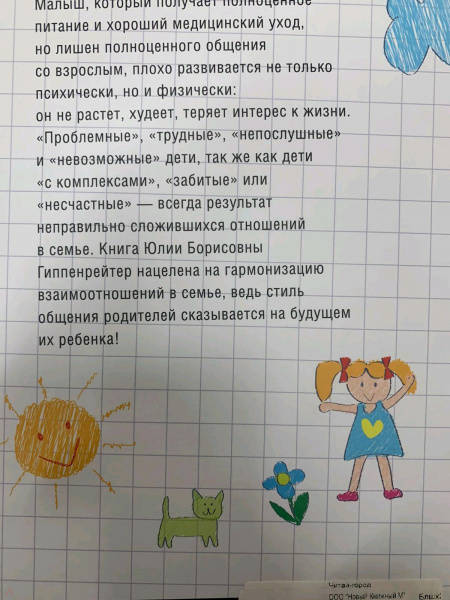 Малыш, который получает полноценное
питание и хороший медицинский уход,
но лишен полноценного общения
со взрослым, плохо развивается не только
психически, но и физически:
он не растет, худеет, теряет интерес к жизни.
«Проблемные», «трудные», «непослушные»
и «невозможные» дети, так же как дети
«с комплексами», «забитые» или
«несчастные» — всегда результат
неправильно сложившихся отношений
в семье. Книга Юлии Борисовны
Гиппенрейтер нацелена на гармонизацию
взаимоотношений в семье, ведь стиль
общения родителей сказывается на будущем
их ребенка!
Читай-город
ООО "Новый Книжный М"